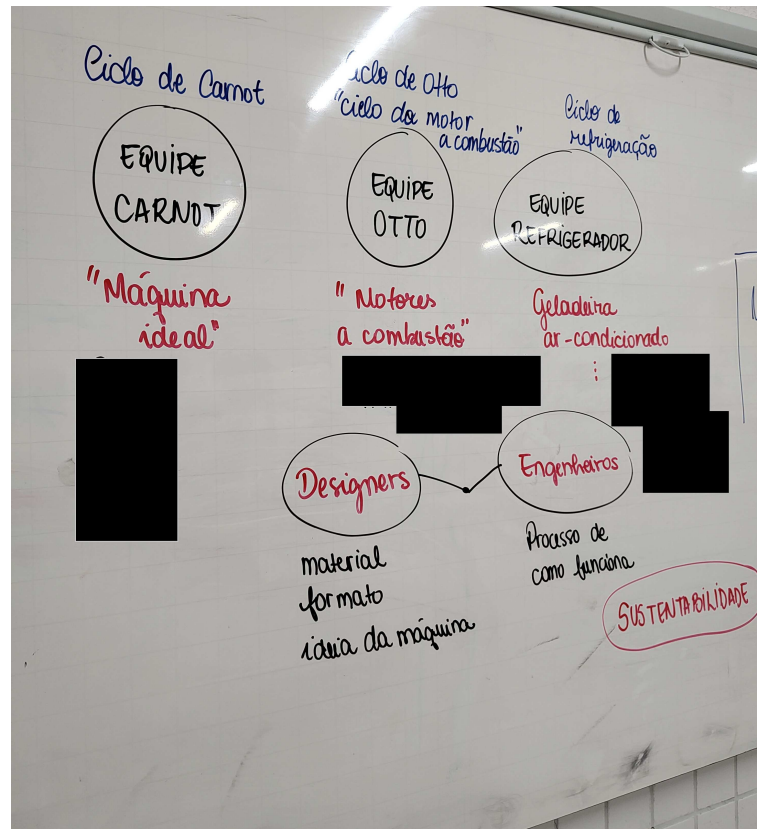 Ciclo de Carnot
EQUIPE
CARNOT
"Máquina
ideal"
Ciclo de Otto
"ciclo do motor
a combustão"
EQUIPE
OTTO
"Motores
a combustão"
Ciclo de
refrigeração
EQUIPE
REFRIGERADOR
Geladeira
ar-condicionado
⋮
Designers
material
formato
ideia da máquina
Engenheiros
Processo de
como funciona
SUSTENTABILIDADE